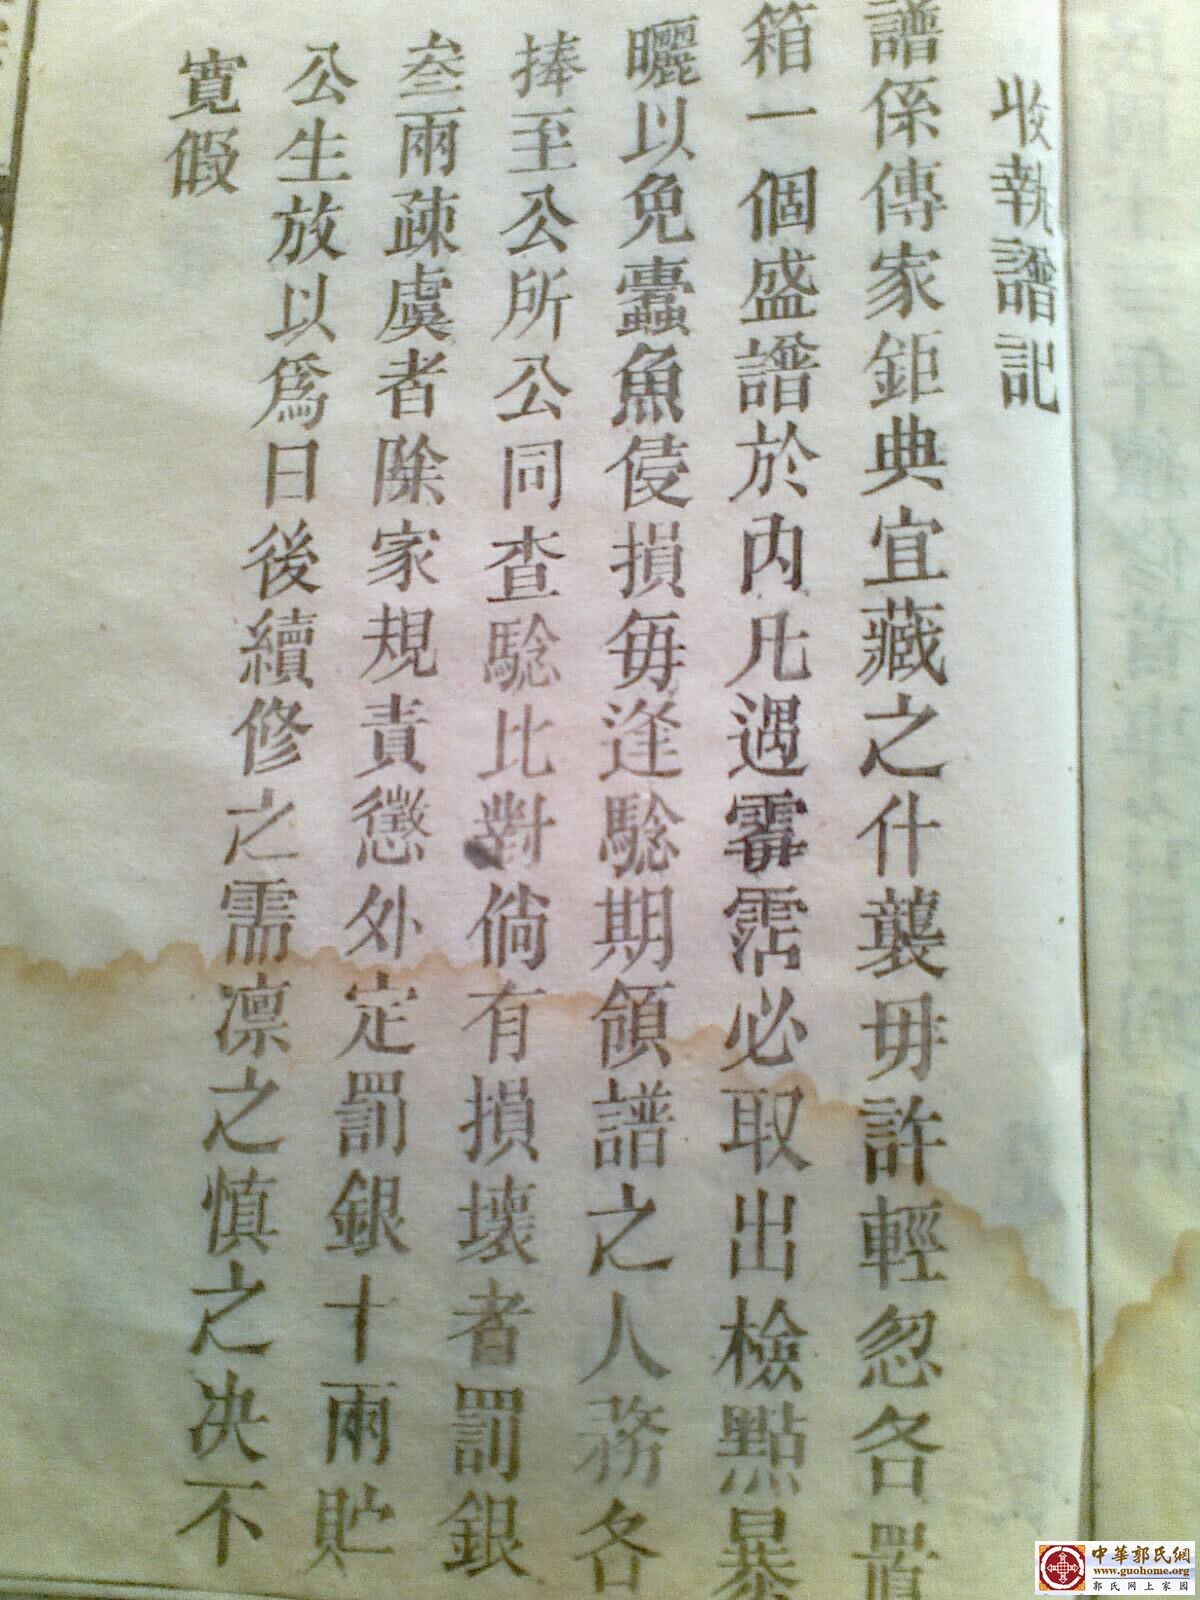 收執譜記
譜係傳家鉅典宜藏之什襲毋許輕忽各置
箱一個盛譜於内凡遇霉霑必取出檢點暴
曬以免蠹魚侵損每逢騐期領譜之人務各
捧至公所公同查騐比對倘有損壞者罰銀
叁兩疎虞者除家規責懲外定罰銀十兩貯
公生放以為日後續修之需凛之慎之决不
寛假
中華郭氏網
www.guohome.org
郭氏网上家园